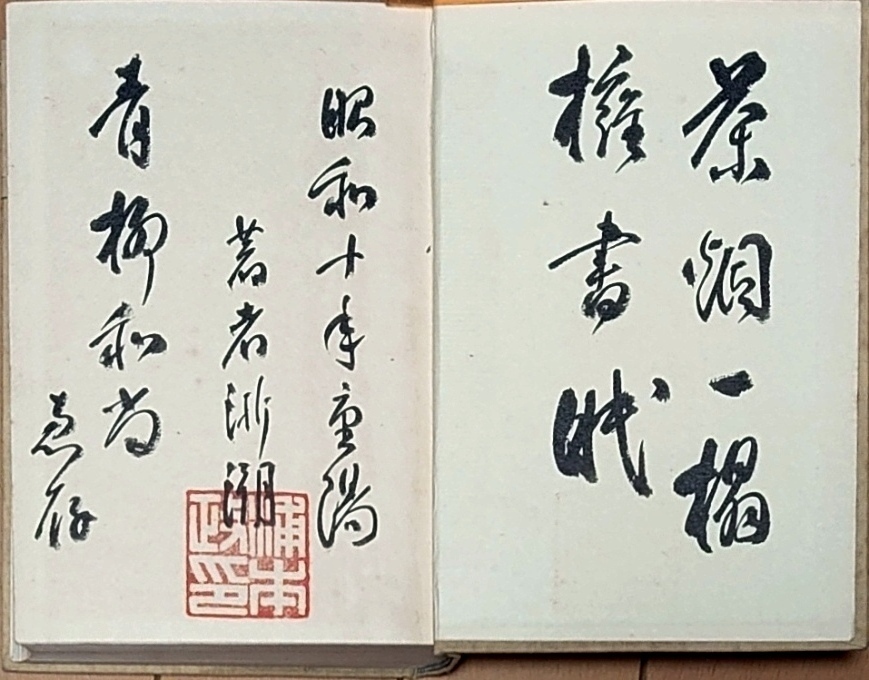 茶烟一榻
擁書眠
昭和十年重陽
著者浙潮
浦本
政印
青柳和尚
恵存